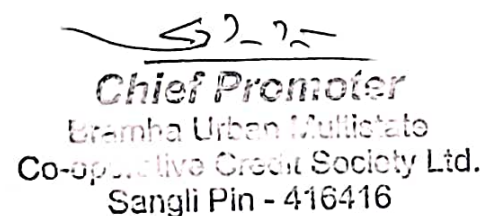 Chief Promoter
Bramha Urban Multistate
Co-operative Credit Society Ltd.
Sangli Pin - 416416